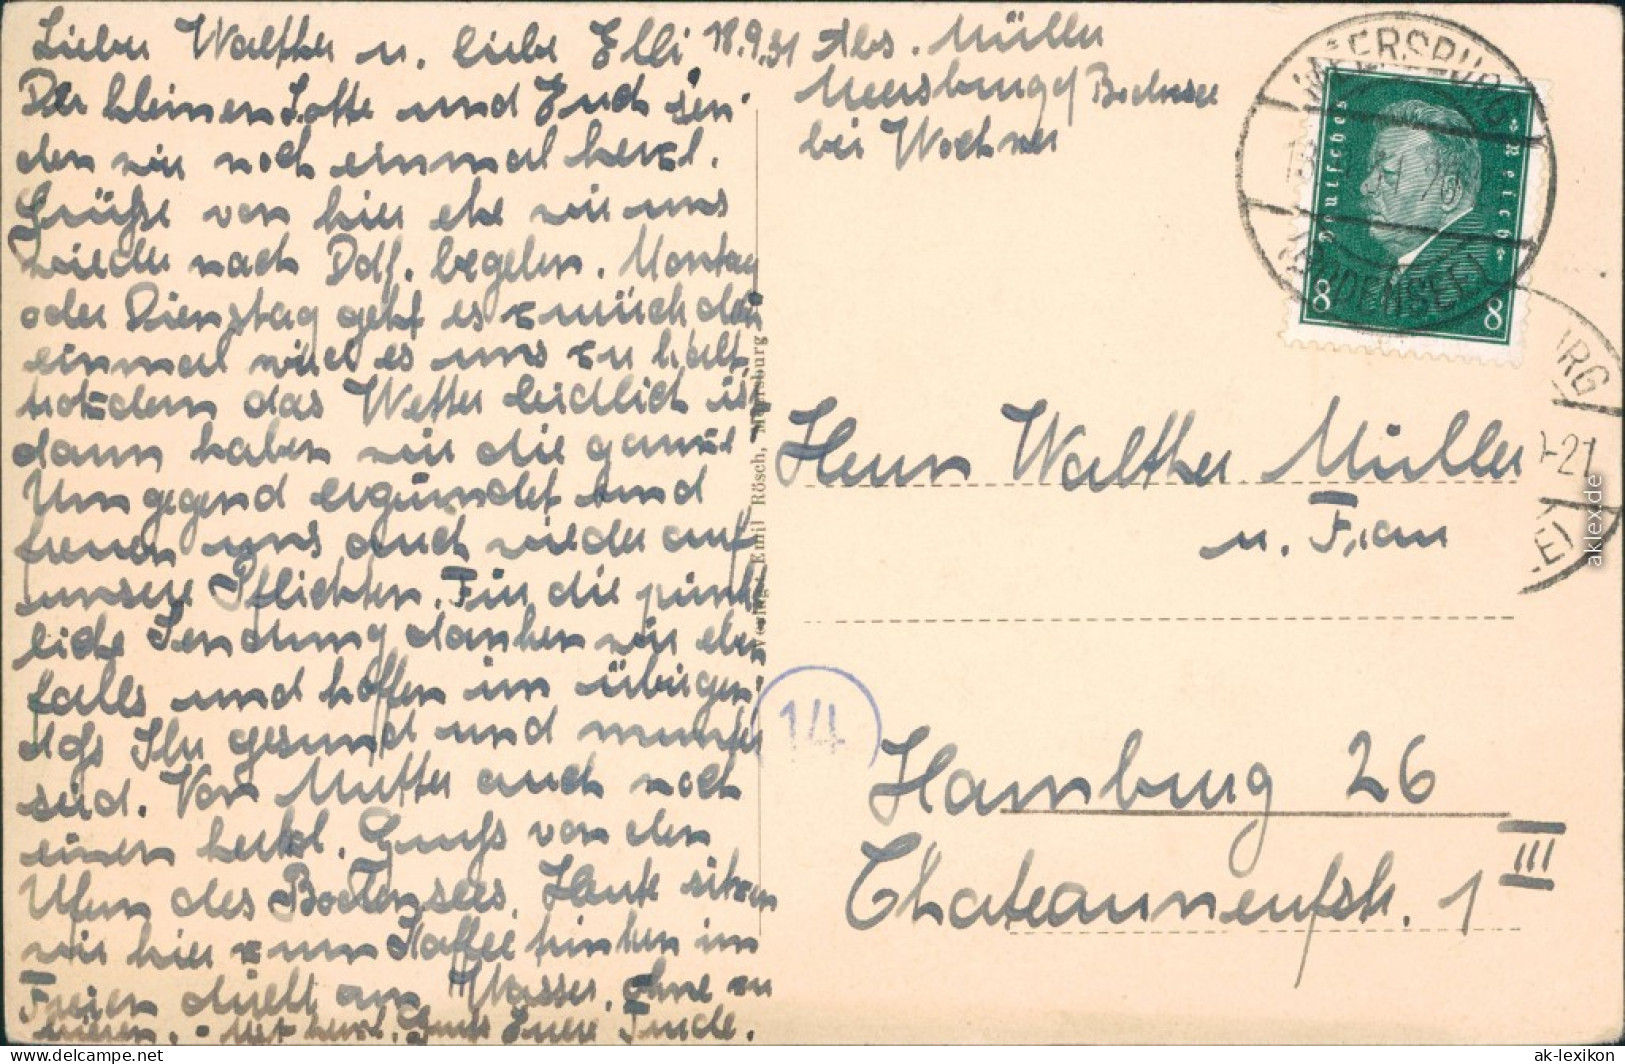 Lieber Walther u. liebe Elli, 18.9.31
Der kleinen Lotte und Euch sen-
den wir noch einmal herzl.
Grüße von hier ehe wir uns
wieder nach Dolf. begeben. Montag
oder Dienstag geht es zurück denn
einmal wird es uns zu kalt,
trotzdem das Wetter leidlich ist
dann haben wir die ganze
Umgegend ergründet und
freuen uns auch wieder auf
unsere Pflichten. Für die pünkt
liche Sendung danken wir eben
falls und hoffen im übrigen
daß Ihr gesund und munter
seid. Von Mutter auch noch
einen herzl. Gruß von den
Ufern des Bodensees. Heute sitzen
wir hier zum Kaffee trinken im
Freien direkt am Wasser, ohne zu
frieren. - Mit herzl. Gruß Eure Trude.
Abs. Müller
Meersburg a/Bodensee
bei Wochner
Verlag: Emil Rösch, Meersburg
MEERSBURG
(BODENSEE)
Deutsches Reich
8 8
Herrn Walther Müller
u. Frau
14
Hamburg 26
Chateauneufstr. 1 III
aklex.de
https://www.delcampe.net
ak-lexikon